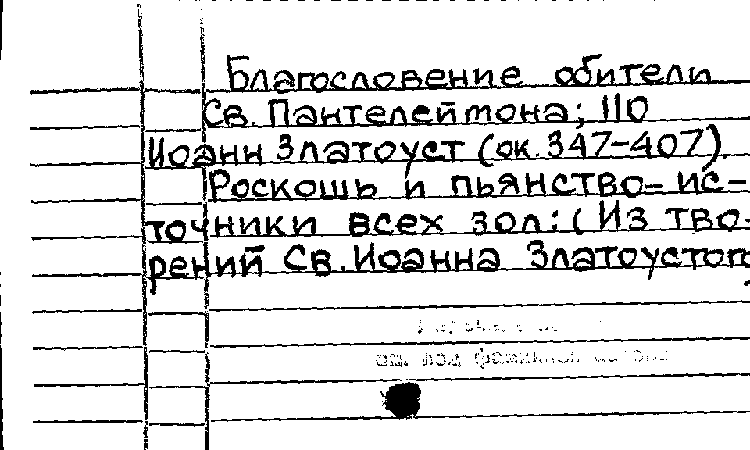 Благословение обители
Св. Пантелеймона; 110
Иоанн Златоуст (ок. 347-407).
Роскошь и пьянство- ис-
точники всех зол: (Из тво-
рений Св. Иоанна Златоустого
см. под